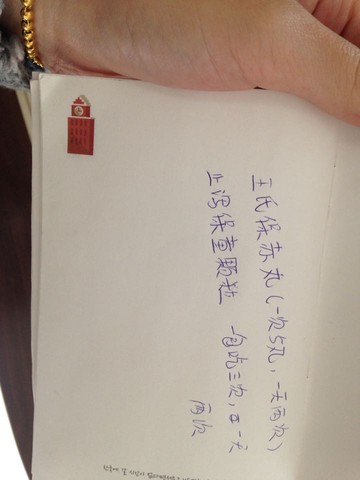 王氏保赤丸(一次5丸,一天两次)
止泻保童颗粒 一包吃三次,一天
两次